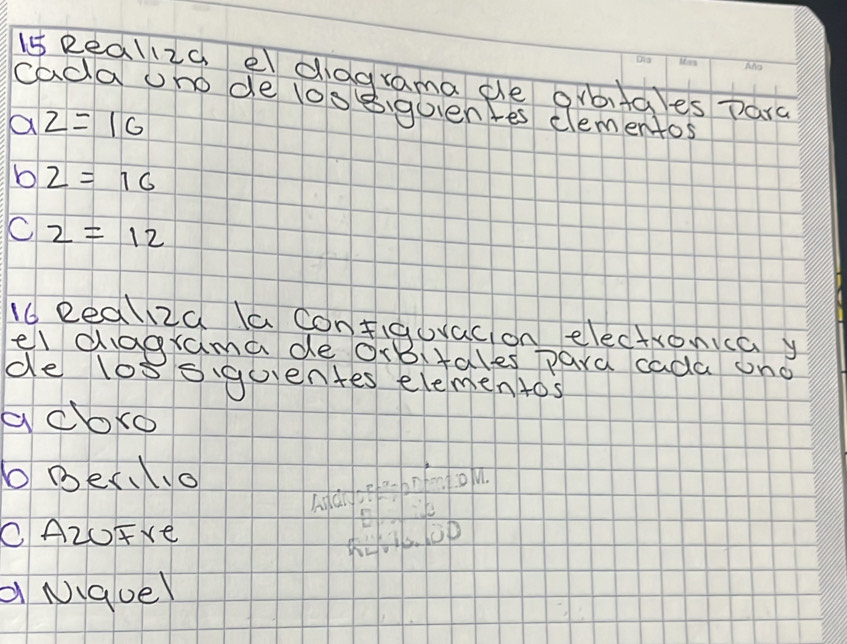 15 Realiza el diagrama de orbitales para
cada uno de los siguientes elementos
a z = 16
b z = 16
c z = 12
16 Realiza la configuracion electronica y
el diagrama de orbitales para cada uno
de los siguientes elementos
a cloro
b Berilio
c Azufre
d Niquel
Dia Mes Año
REVISADO